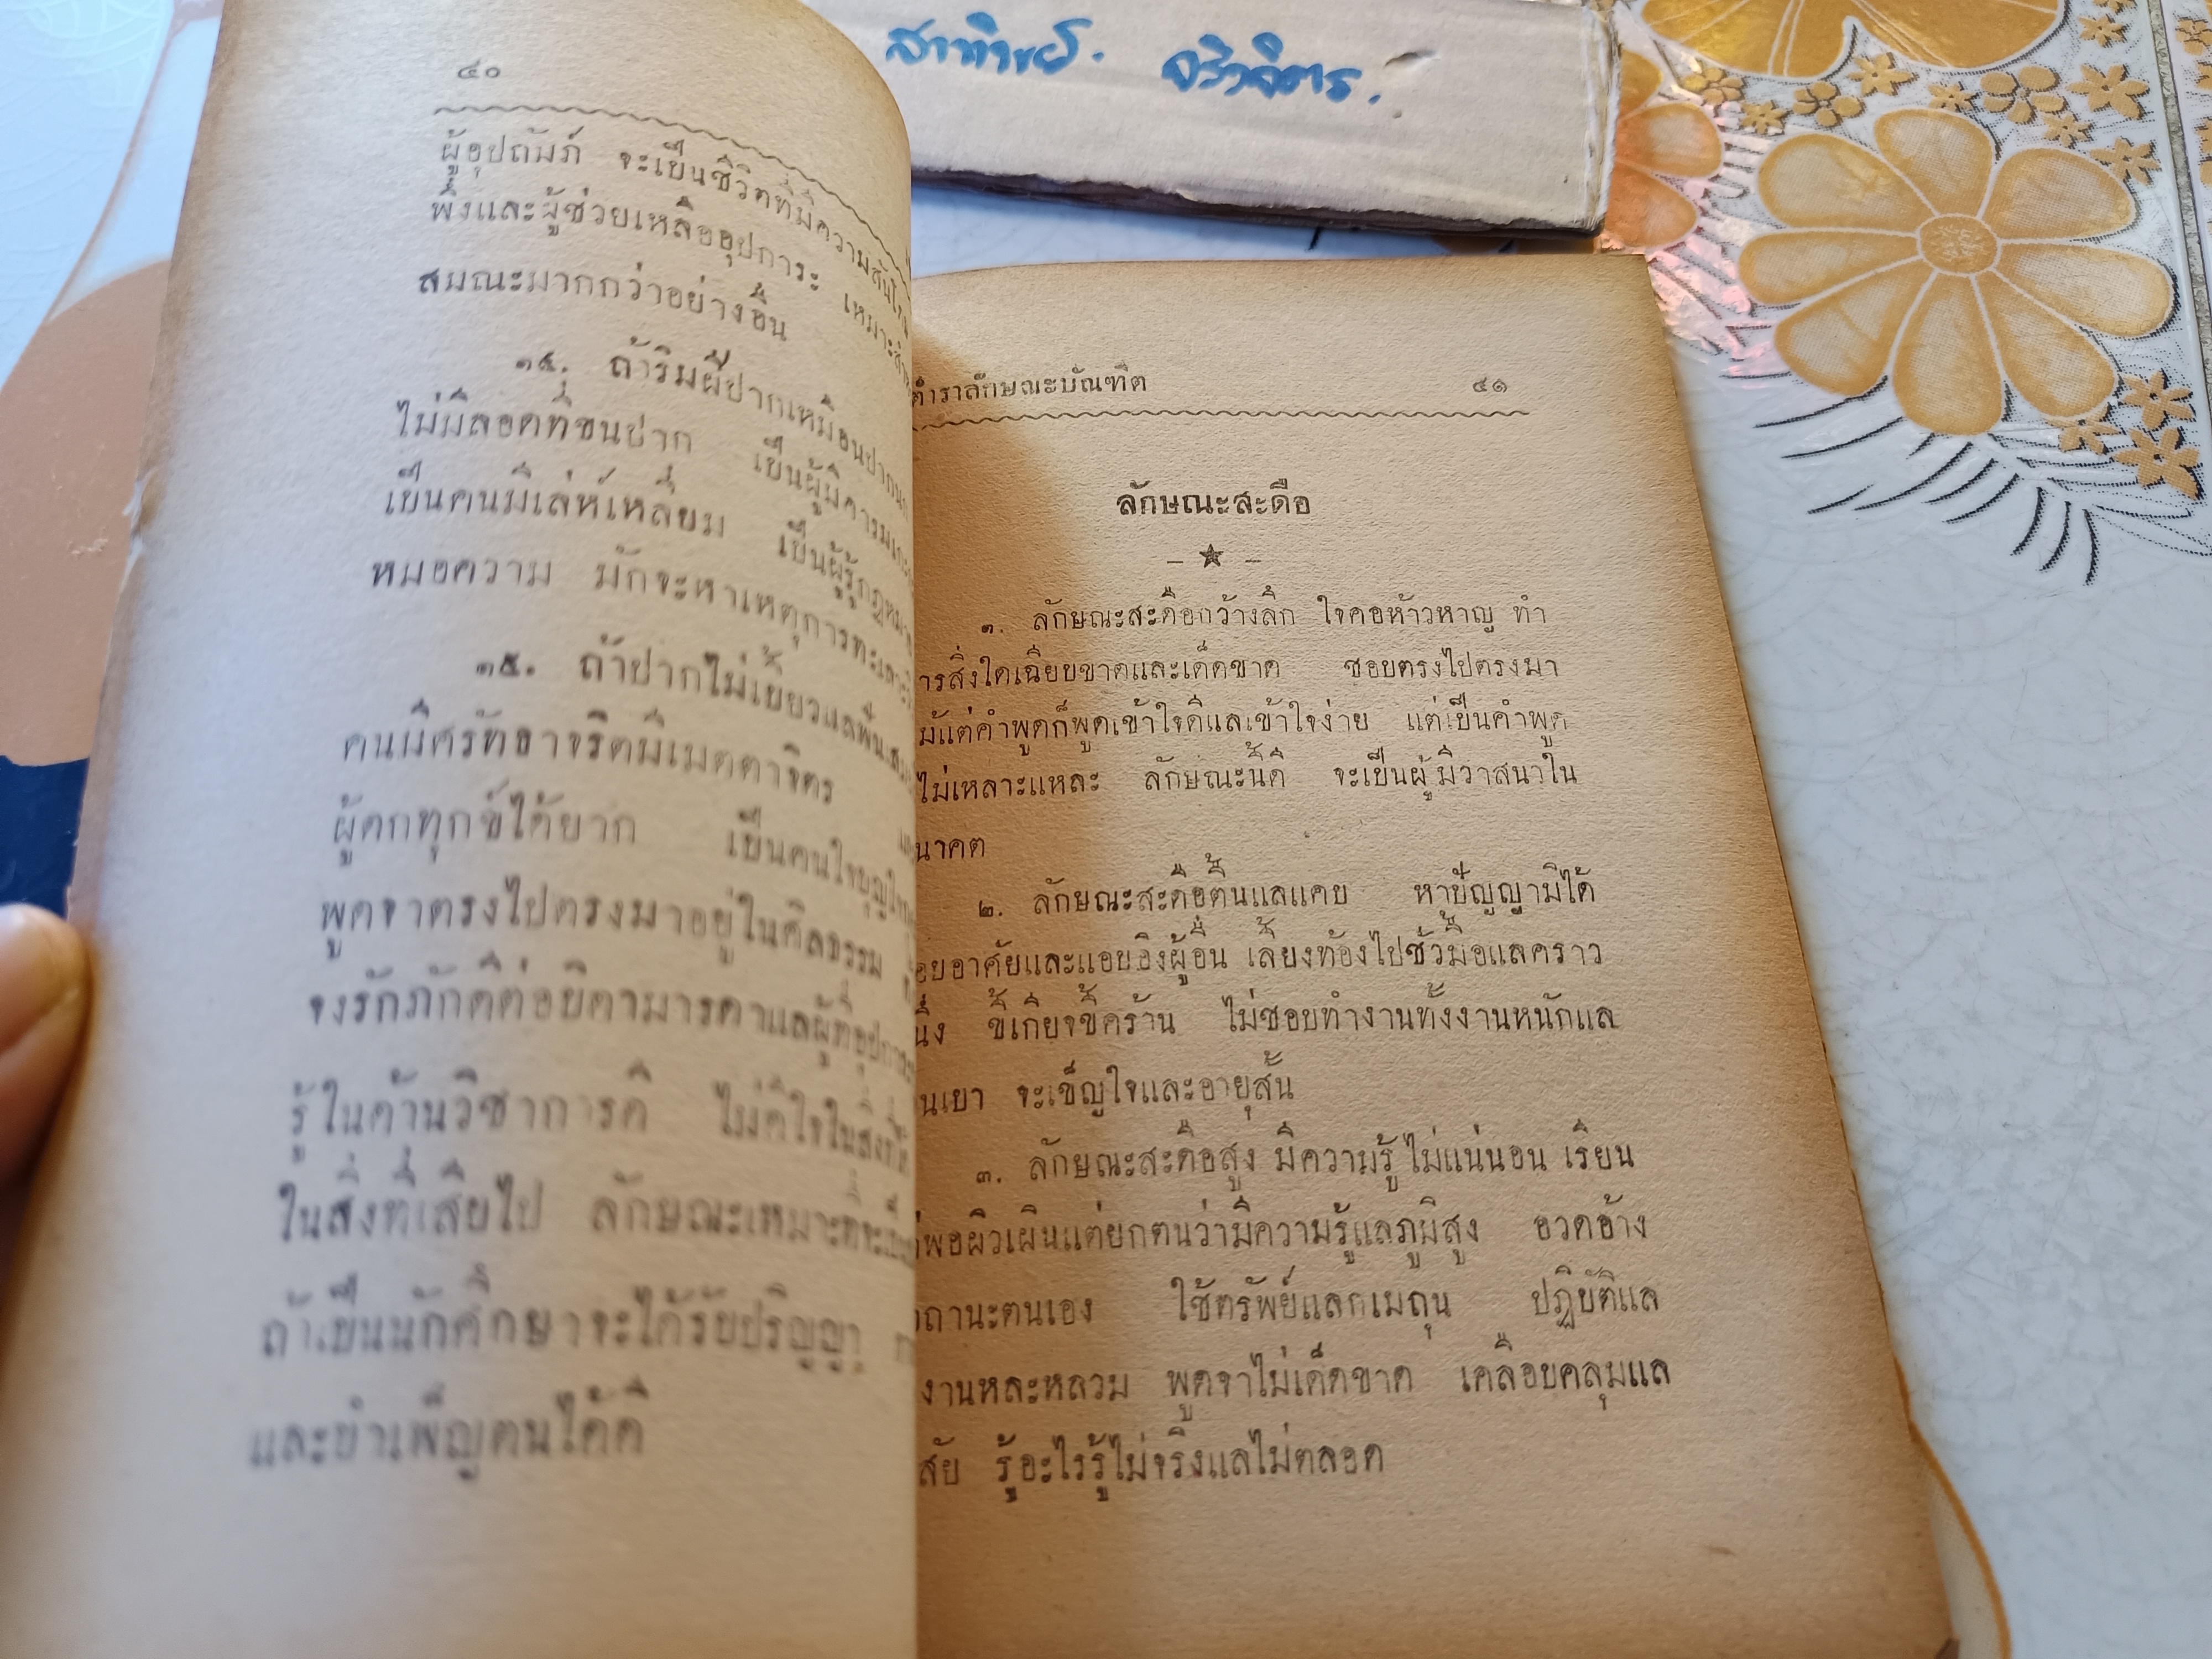 ๔๐
ผู้อุปถัมภ์ จะเป็นชีวิตที่มีความสันโดษ
พึ่งและผู้ช่วยเหลืออุปการะ เหมาะสำ
สมณะมากกว่าอย่างอื่น
๑๔. ถ้าริมฝีปากเหมือนปากนก
ไม่มีลอดที่ขนปาก เป็นผู้มีคารม
เป็นคนมีเล่ห์เหลี่ยม เป็นผู้รู้กฎหมาย
หมอความ มักจะหาเหตุการทะเลาะ
๑๕. ถ้าปากไม่เบี้ยวแลฟัน
คนมีศรัทธาจริตมีเมตตาจิตร
ผู้ตกทุกข์ได้ยาก เป็นคนใจบุญ
พูดจาตรงไปตรงมาอยู่ในศีลธรรม
จงรักภักดีต่อบิดามารดาแลผู้ที่อุปการะ
รู้ในด้านวิชาการดี ไม่ดีใจในสิ่งที่ได้
ในสิ่งที่เสียไป ลักษณะเหมาะที่จะเป็น
ถ้าเป็นนักศึกษาจะได้รับปริญญา
และบำเพ็ญตนได้ดี
สาทิพย์. จริวจิตร.
ตำราลักษณะบัณฑิต ๔๑
ลักษณะสะดือ
๑. ลักษณะสะดือกว้างลึก ใจคอห้าวหาญ ทำ
ารสิ่งใดเฉียบขาดและเด็ดขาด ชอบตรงไปตรงมา
ม้แต่คำพูดก็พูดเข้าใจดีแลเข้าใจง่าย แต่เป็นคำพูด
ไม่เหลาะแหละ ลักษณะนี้ดี จะเป็นผู้มีวาสนาใน
นาคต
๒. ลักษณะสะดือตื้นแลแคบ หาปัญญามิได้
อยอาศัยและแอบอิงผู้อื่น เลี้ยงท้องไปชั่วมื้อแลคราว
นึ่ง ขี้เกียจขี้คร้าน ไม่ชอบทำงานทั้งงานหนักแล
นเบา จะเข็ญใจและอายุสั้น
๓. ลักษณะสะดือสูง มีความรู้ไม่แน่นอน เรียน
พอผิวเผินแต่ยกตนว่ามีความรู้แลภูมิสูง อวดอ้าง
ถานะตนเอง ใช้ทรัพย์แลกเมถุน ปฏิบัติแล
งานหละหลวม พูดจาไม่เด็ดขาด เคลือบคลุมแล
สัย รู้อะไรรู้ไม่จริงแลไม่ตลอด